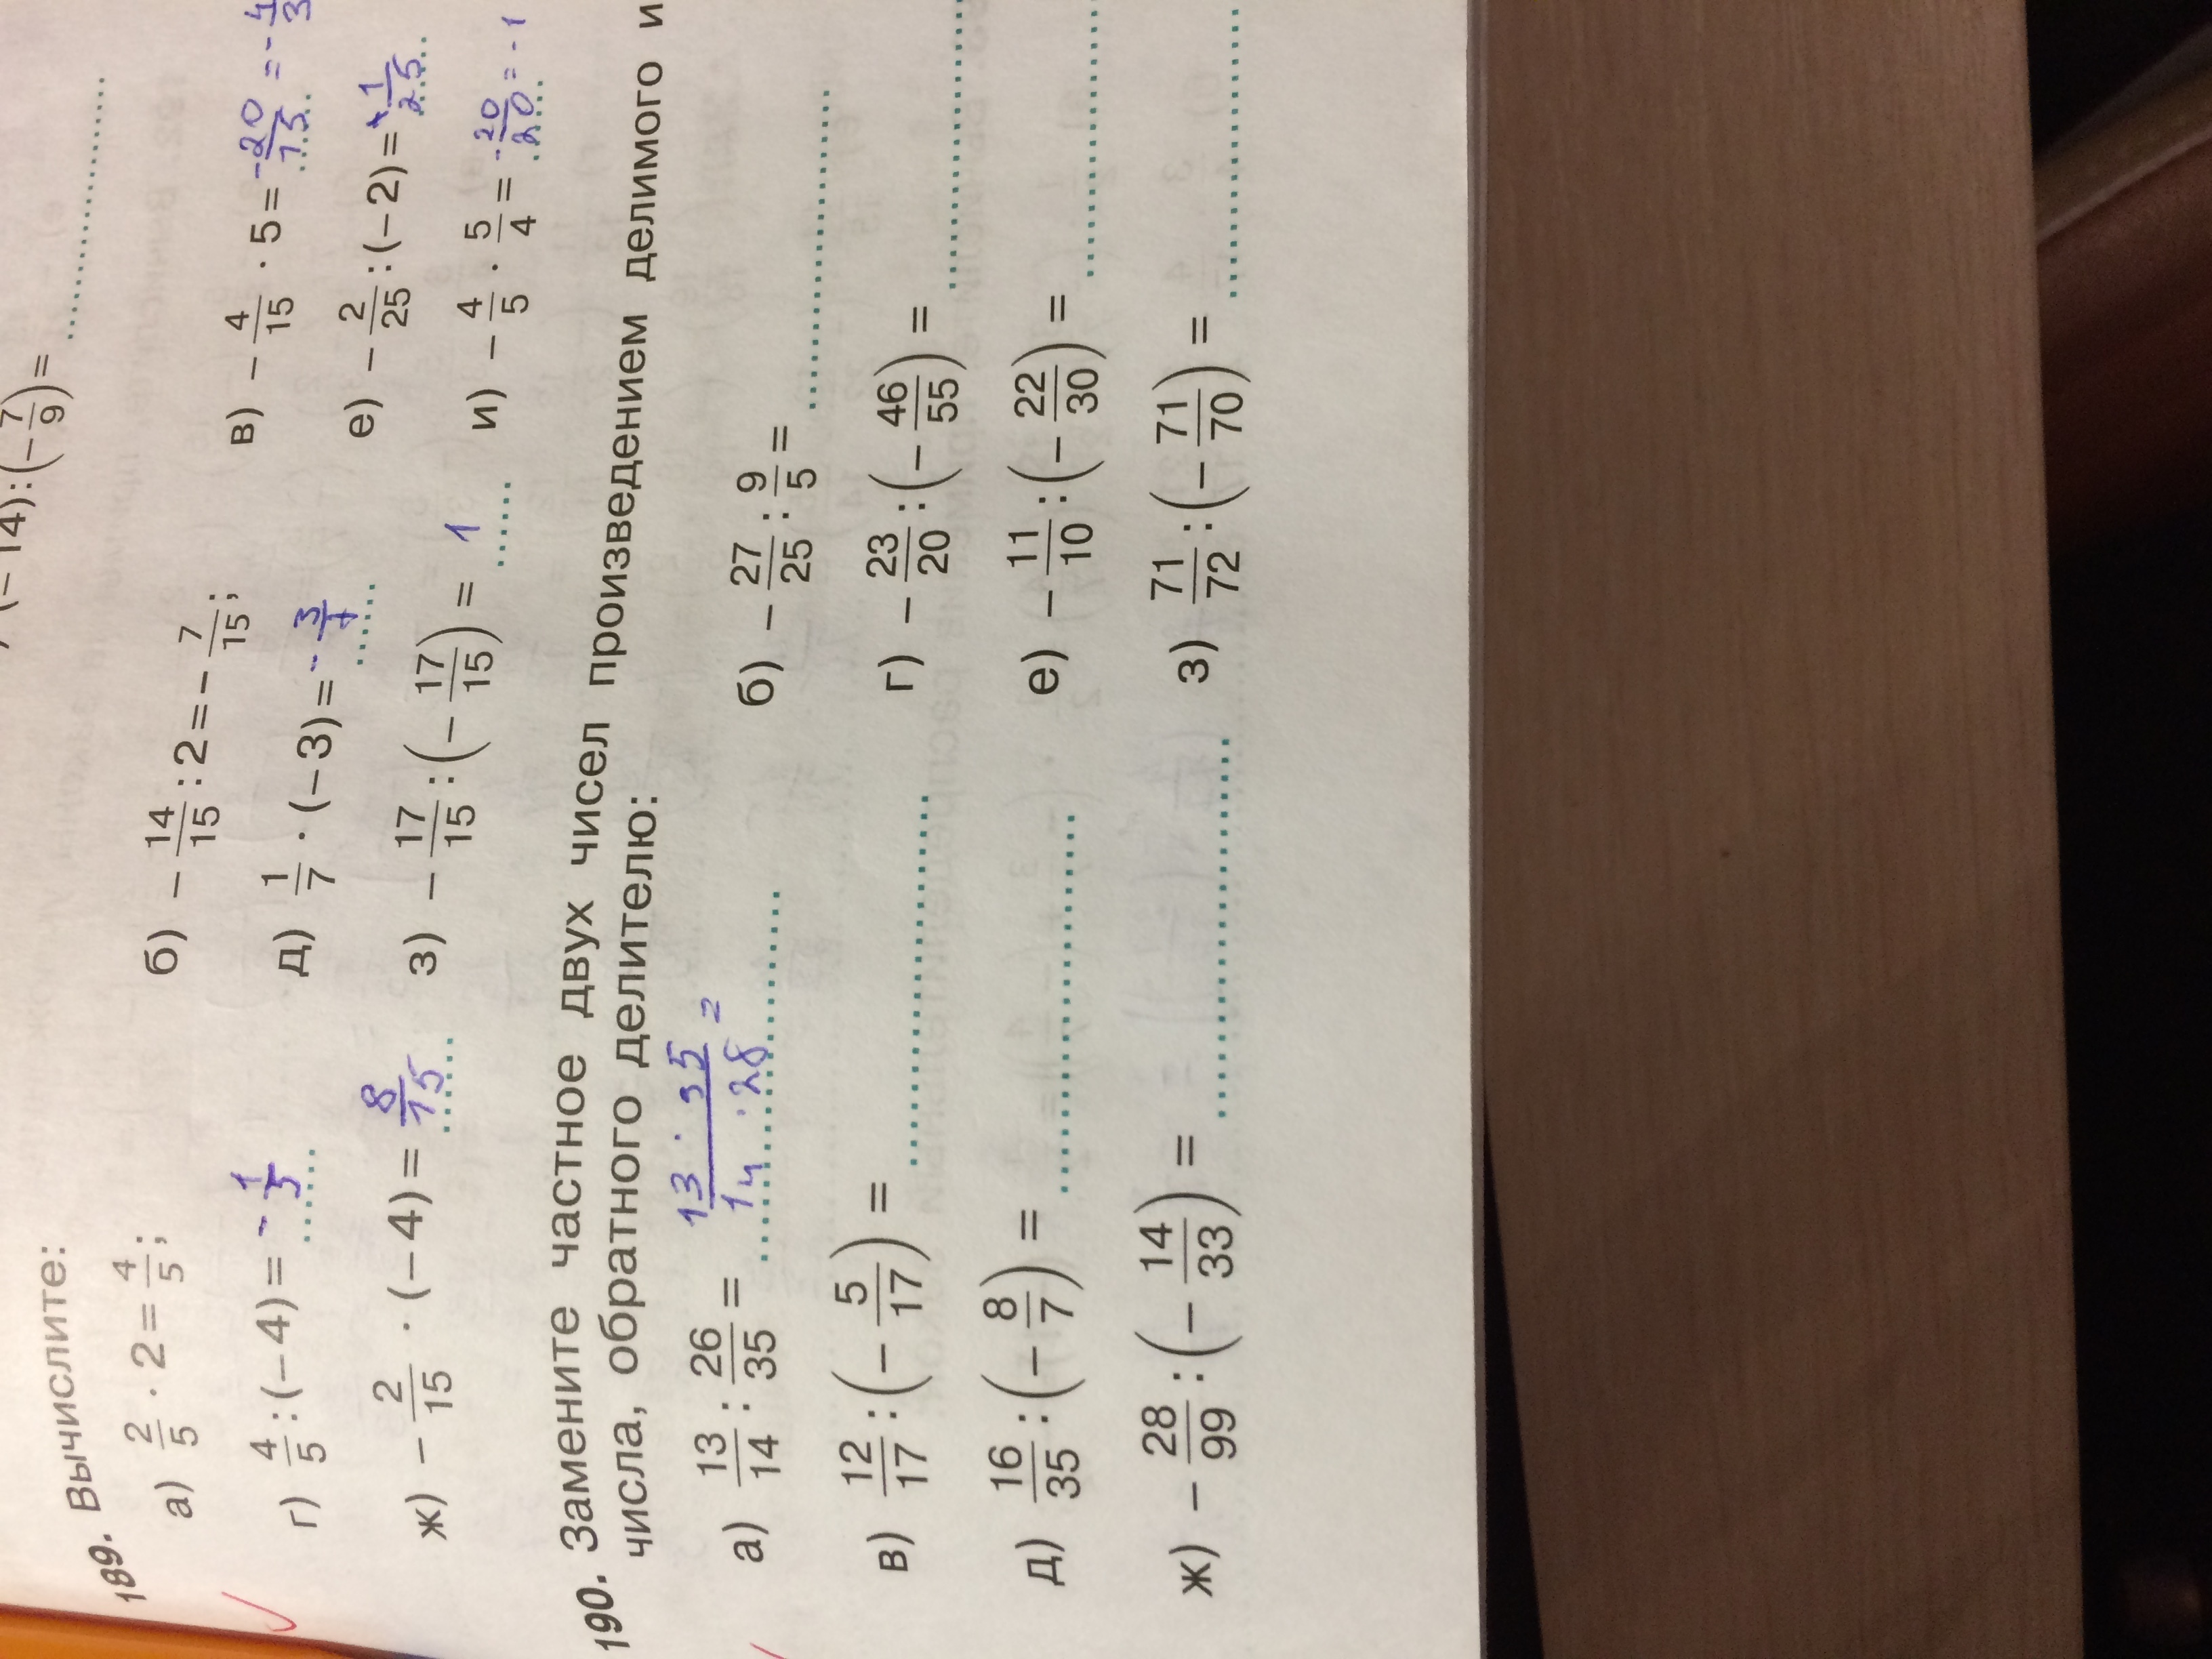 (−14):(−7/9)=
189. Вычислите:
а) 2/5 · 2 = 4/5; б) −14/15 : 2 = −7/15; в) −4/15 · 5 = −20/15 = −4/3
г) 4/5 : (−4) = −1/5 д) 1/7 · (−3) = −3/7 е) −2/25 : (−2) = 1/25
ж) −2/15 · (−4) = 8/15 з) −17/15 : (−17/15) = 1 и) −4/5 · 5/4 = −20/20 = −1
190. Замените частное двух чисел произведением делимого и
числа, обратного делителю:
а) 13/14 : 26/35 = 13 · 35/14 · 28 = б) −27/25 : 9/5 =
в) 12/17 : (−5/17) = г) −23/20 : (−46/55) =
д) 16/35 : (−8/7) = е) −11/10 : (−22/30) =
ж) −28/99 : (−14/33) = з) 71/72 : (−71/70) =